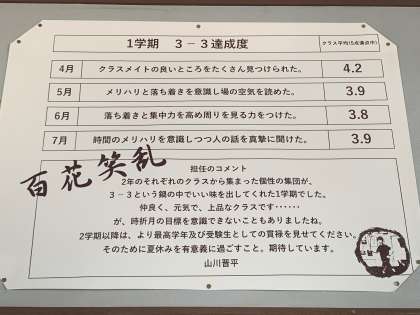 1学期 3－3達成度 クラス平均(5点満点中)
4月 クラスメイトの良いところをたくさん見つけられた。 4.2
5月 メリハリと落ち着きを意識し場の空気を読めた。 3.9
6月 落ち着きと集中力を高め周りを見る力をつけた。 3.8
7月 時間のメリハリを意識しつつ人の話を真摯に聞けた。 3.9
百花笑乱
担任のコメント
2年のそれぞれのクラスから集まった個性の集団が、
3－3という鍋の中でいい味を出してくれた1学期でした。
仲良く、元気で、上品なクラスです‥‥‥
が、時折月の目標を意識できないこともありましたね。
2学期以降は、より最高学年及び受験生としての貫禄を見せてください。
そのために夏休みを有意義に過ごすこと。期待しています。
山川晋平